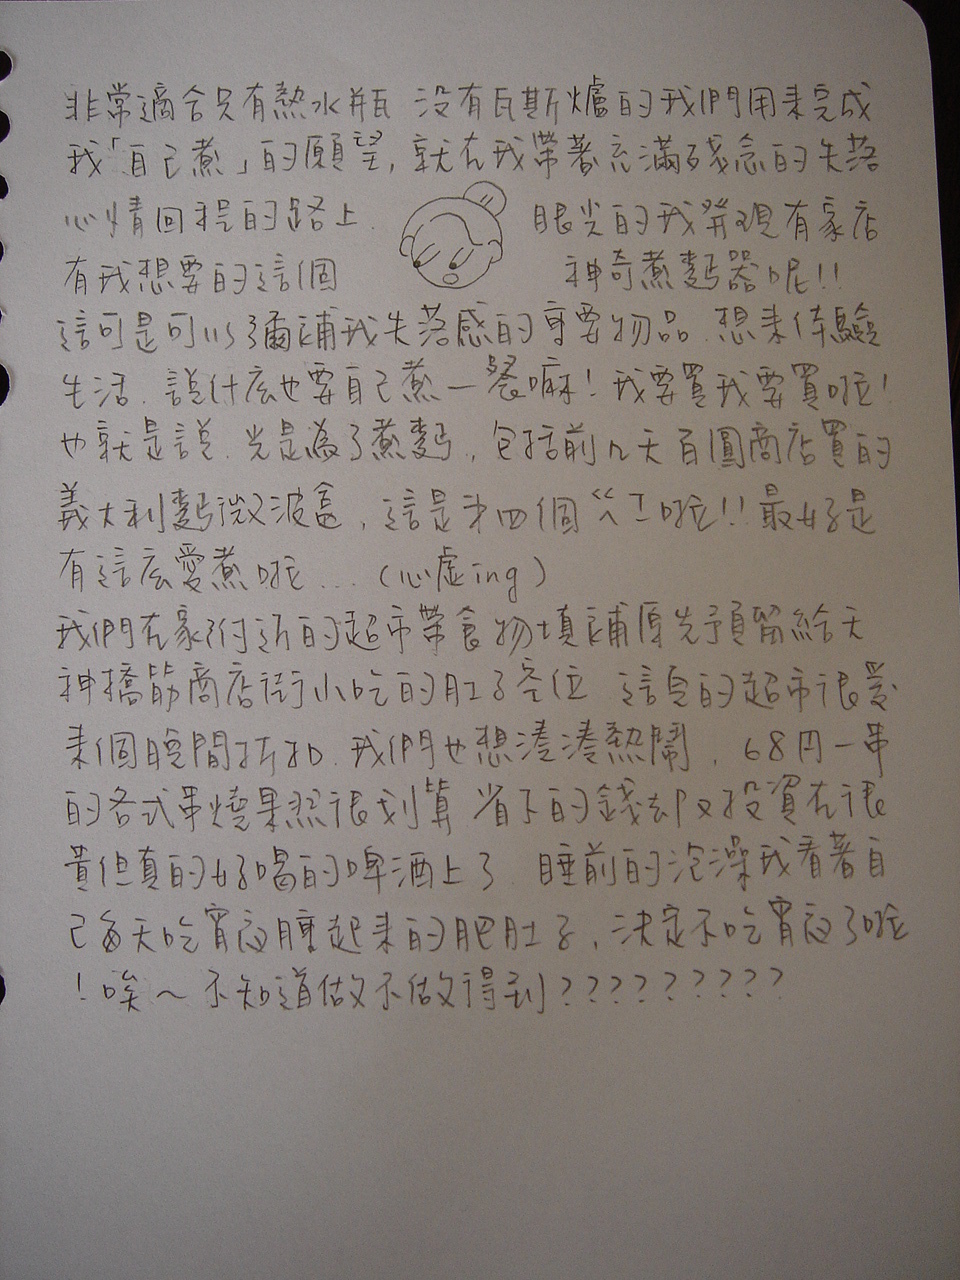 非常適合只有熱水瓶 沒有瓦斯爐的我們用來完成
我「自己煮」的願望,就在我帶著充滿殘念的失落
心情回程的路上. 眼尖的我發現有家店
有我想要的這個 神奇煮麵器呢!!
這可是可以彌補我失落感的重要物品.想來体驗
生活.說什么也要自己煮一餐嘛!我要買我要買啦!
也就是說.光是為了煮麵,包括前几天百圓商店買的
義大利麵微波盒,這是第四個ㄍㄧ啦!!最好是
有這么愛煮啦...(心虛ing)
我們在家附近的超市帶食物填補原先預留給天
神橋筋商店街小吃的肚子空位 這兒的超市很愛
來個晚間折扣.我們也想湊湊熱鬧,68円一串
的各式串燒果然很划算 省下的錢却又投資在很
貴但真的好喝的啤酒上了.睡前的泡澡我看著自
己每天吃宵夜腫起來的肥肚子,決定不吃宵夜了啦
!唉~不知道做不做得到?????????